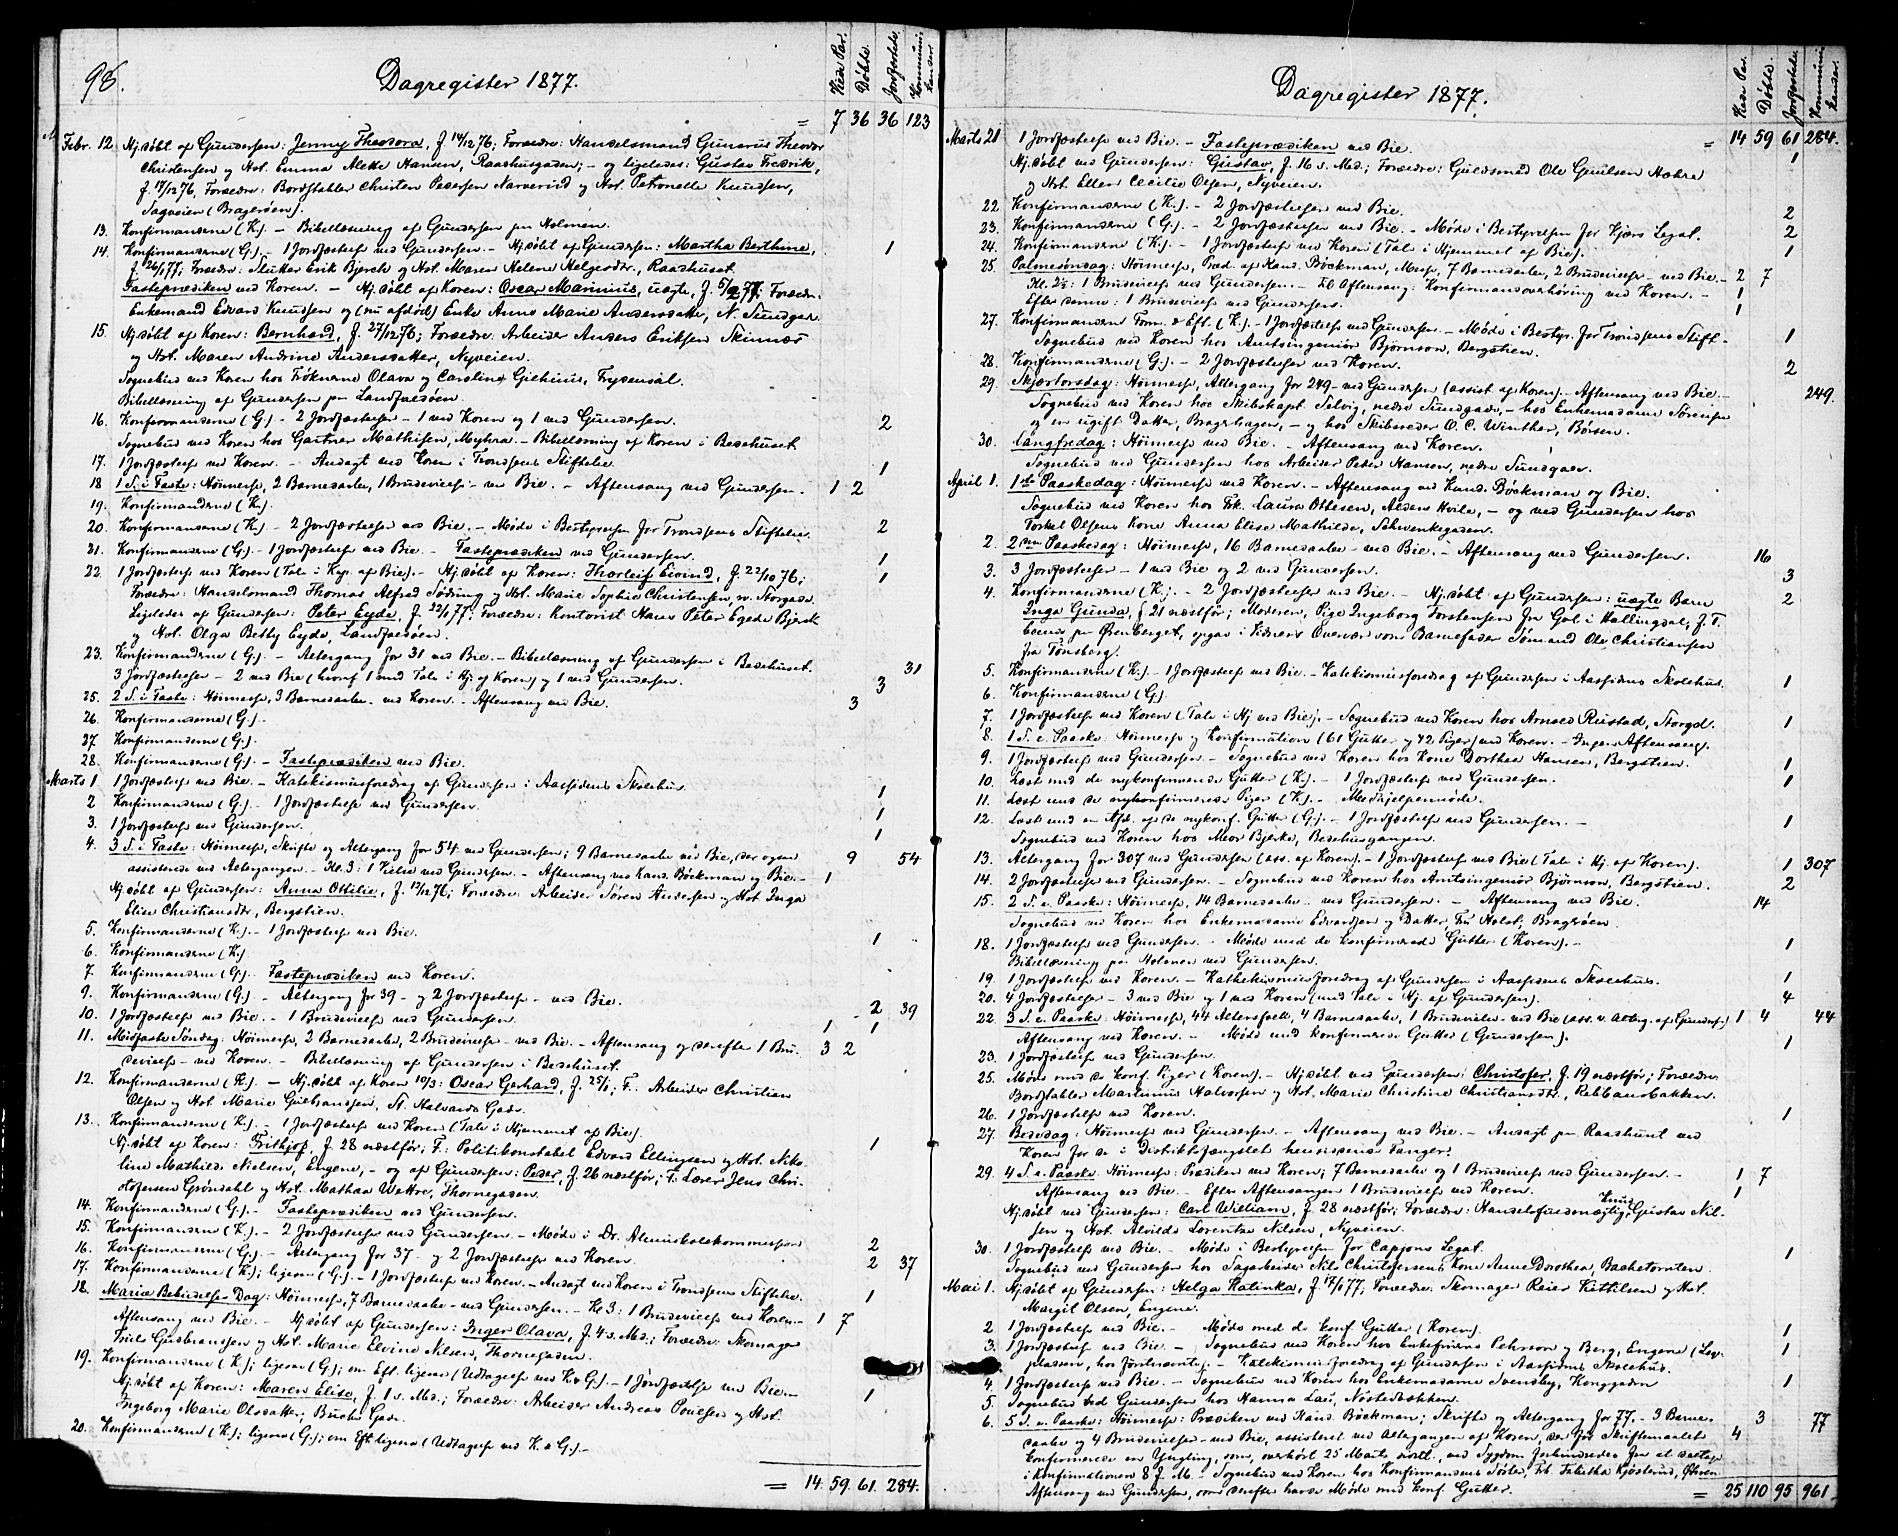 98.
Dagregister 1877.
Viede Par.
Døbte.
Jordfæstede
Kommunikander.
= 7 36 36 123
Febr. 12. Hj.døbt af Gundersen: Jenny Theodora, f. 14/12 76; Forældre: Handelsmand Gunerus Theodor
Christensen og Hst. Emma Mette Hansen, Raadhusgaden; - og ligeledes: Gustav Fredrik,
f. 17/12 76, Forældre: Bordstabler Christen Pedersen Narverud og Hst. Petronelle Knudsen,
Sagveien (Bragerøen).
13. Konfirmanderne (K.) - Bibellæsning af Gundersen paa Holmen.
14. Konfirmanderne (G.) - 1 Jordfæstelse ved Gundersen. - Hj.døbt af Gundersen: Martha Berthine, 1
f. 26/1 77; Forældre: Slutter Erik Bjerck og Hst. Maren Helene Helgesdtr., Raadhuset.
Fasteprædiken ved Koren. - Hj.døbt af Koren: Oscar Marinius, uægte, f. 5/2 77; Forældre:
Enkemand Edvard Knudsen og (nu afdød) Enke Anne Marie Andersdatter, N. Sundgae.
15. Hj.døbt af Koren: Bernhard, f. 27/12 76; Forældre: Arbeider Anders Eriksen Skinnes
og Hst. Maren Andrine Andersdatter, Nyveien.
Sognebud ved Koren hos Frøknerne Olava og Caroline, Frydendal.
Bibellæsning af Gundersen paa Landfaldøen.
16. Konfirmanderne (G.) - 2 Jordfæstelser - 1 ved Koren og 1 ved Gundersen. 2
Sognebud ved Koren hos Gartner Mathisen, Myhra. - Bibellæsning af Koren i Bedehuset.
17. 1 Jordfæstelse ved Koren. - Andagt ved Koren i Trondsens Stiftelse. 1
18 1 S. i Faste: Høimesse, 2 Barnedaabe, 1 Brudevielse - ved Bie. - Aftensang ved Gundersen. 1 2
19. Konfirmanderne (K.)
20. Konfirmanderne (K.) - 2 Jordfæstelser ved Bie. - Møde i Bestyrelsen for Trondsens Stiftelse. 2
21. Konfirmanderne (G.) - 1 Jordfæstelse ved Bie. - Fasteprædiken ved Gundersen. 1
22. 1 Jordfæstelse ved Koren (Tale i Hj. af Bie). - Hj.døbt af Koren: Thorleif Eivind, f. 22/10 76; 1
Forældre: Handelsmand Thomas Alfred Søding og Hst. Marie Sophie Christensen, n. Storgade.
Ligeledes af Gundersen: Peter Eyde, f. 22/1 77; Forældre: Kontorist Hans Peter Egede Bjerck
og Hst. Olga Betty Eyde, Landfaldøen.
23. Konfirmanderne (G.) - Altergang for 31 ved Bie. - Bibellæsning af Gundersen i Bedehuset. 31
3 Jordfæstelser - 2 ved Bie (hvoraf 1 med Tale i Hj. af Koren) og 1 ved Gundersen. 3
25. 2 S. i Faste: Høimesse, 3 Barnedaabe - ved Koren. - Aftensang ved Bie. 3
26. Konfirmanderne (G.) -
27 Konfirmanderne (G.).
28. Konfirmanderne (G.) - Fasteprædiken ved Bie.
Marts 1 1 Jordfæstelse ved Bie. - Katekismusforedrag af Gundersen i Aassidens Skolehus. 1
2 Konfirmanderne (G.) - 1 Jordfæstelse ved Gundersen. 1
3. 1 Jordfæstelse ved Gundersen. 1
4. 3 S. i Faste: Høimesse, Skrifte og Altergang for 54 ved Gundersen; 9 Barnedaabe ved Bie, der ogsaa 9 54
assisterede ved Altergangen. - Kl. 3: 1 Vielse ved Gundersen. - Aftensang ved Kand. Bøckman og Bie. - 1
Hj.døbt af Gundersen: Anna Othilie, f. 17/12 76; Forældre: Arbeider Søren Andersen og Hst. Inga
Elise Christiansdtr., Bergstien.
5. Konfirmanderne (K.) - 1 Jordfæstelse ved Bie. 1
6. Konfirmanderne (K.)
7. Konfirmanderne (G.). Fasteprædiken ved Koren.
9. Konfirmanderne (G.) - Altergang for 39 - og 2 Jordfæstelser - ved Bie. 2 39
10. 1 Jordfæstelse ved Bie. - 1 Brudevielse ved Gundersen. 1 1
11. Midfaste Søndag: Høimesse, 2 Barnedaabe, 2 Brudevielser - ved Bie. - Aftensang og derefter 1 Bru- 3 2
devielse - ved Koren. - Bibellæsning af Gundersen i Bedehuset.
12. Konfirmanderne (K.) - Hj.døbt af Koren 10/3: Oscar Gerhard, f. 25/1; F.: Arbeider Christian
Olsen og Hst. Marie Gulbrandsen, St. Halvards Gade.
13. Konfirmanderne (K.) - 1 Jordfæstelse ved Koren (Tale i Hjemmet af Bie). 1
Hj.døbt af Koren: Frithjof, f. 28 næstfør; F.: Politikonstabel Edvard Ellingsen og Hst. Niko-
line Mathilde Nielsen, Engene, - og af Gundersen: Peder, f. 26 næstfør; F.: Lærer Jens Chri-
stofersen Grøndahl og Hst. Mathea Wettre, Thornegaden.
14. Konfirmanderne (G.) - Fasteprædiken ved Gundersen.
15. Konfirmanderne (K.) - 2 Jordfæstelser ved Gundersen. - Møde i Dr. Almuskolekommission 2
16. Konfirmanderne (G.) - Altergang for 37 - og 2 Jordfæstelser ved Koren. 2 37
17. Konfirmanderne (K.); ligesaa (G.). - 1 Jordfæstelse ved Koren. - Andagt ved Koren i Trondsens Stiftelse. 1
18. Mariæ Bebudelses Dag: Høimesse, 7 Barnedaabe - ved Gundersen. - Kl 3: 1 Brudevielse ved Koren. - 1 7
Aftensang ved Bie. - Hj.døbt af Gundersen: Inger Olava, f. 4 d. Md.; Forældre: Skomager
Troels Gudbrandsen og Hst. Marie Elvine Nilsen, Thornegaden.
19. Konfirmanderne (K.); ligesaa (G.); om Eft. ligesaa (Udtagelse ved K. & G.). - 1 Jordfæstelse ved Bie. - 1
Hj.døbt af Koren: Maren Elise, f. 1 d. Md.; Forældre: Arbeider Andreas Poulsen og Hst.
Ingeborg Marie Olsdatter, Buchs Gade.
20. Konfirmanderne (K.); ligesaa (G.); om Eft. ligesaa (Udtagelse ved K. & G.). -
= 14. 59. 61. 284.
Dagregister 1877.
Viede Par.
Døbte.
Jordfæstede
Kommunikander.
Marts 21 1 Jordfæstelse ved Bie. - Fasteprædiken ved Bie. = 14 59 61 284.
Hj.døbt ved Gundersen: Gustav, f. 16 d. Md.; Forældre: Guldsmed Ole Gulliksen Næhra 1
og Hst. Ellen Cecilie Olsen, Nyveien.
22 Konfirmanderne (K.). - 2 Jordfæstelser ved Bie. 2
23. Konfirmanderne (G.). - 2 Jordfæstelser ved Bie. - Møde i Bestyrelsen for Kjærs Legat. 2
24. Konfirmanderne (K.). - 1 Jordfæstelse ved Koren (Tale i Hjemmet af Bie). 1
25. Palmesøndag: Høimesse, Præd. af Kand. Bøckman, Messe, 7 Barnedaabe, 2 Brudevielser - ved Bie. - 2 7
Kl. 2½: 1 Brudevielse ved Gundersen. - Til Aftensang: Konfirmandoverhøring ved Koren. - 1
Efter samme: 1 Brudevielse ved Gundersen. 1
27. Konfirmanderne Form. & Eft. (K.). - 1 Jordfæstelse ved Gundersen. - Møde i Bestyr. for Trondsens Stift. - 1
Sognebud ved Koren hos Amtsingeniør Bjørnson, Bergstien.
28. Konfirmanderne (G.). - 2 Jordfæstelser ved Koren. 2
29. Skjærtorsdag: Høimesse, Altergang for 249 - ved Gundersen (assist. af Koren). - Aftensang ved Bie. - 249.
Sognebud ved Koren hos Skibskapt. Selvig, nedre Sundgade, - hos Enkemadame Sørensen
og en ugift Datter, Bragerhagen, - og hos Skibsreder O. C. Winther, Børsen.
30. Langfredag: Høimesse ved Bie. - Aftensang ved Koren.
Sognebud ved Gundersen hos Arbeider Peter Hansen, nedre Sundgade.
April 1. 1ste Paaskedag: Høimesse ved Koren. - Aftensang ved Kand. Bøckman og Bie.
Sognebud ved Koren hos Frk. Laura Ottesen, Aldens Hvile, - og ved Gundersen hos
Torkel Olsens Kone Anna Elise Mathilde, Schwenkegaden.
2. 2den Paaskedag: Høimesse, 16 Barnedaabe - ved Bie. - Aftensang ved Gundersen. 16
3. 3 Jordfæstelser - 1 ved Bie og 2 ved Gundersen. 3
4. Konfirmanderne (K.). - 2 Jordfæstelser ved Bie. - Hj.døbt af Gundersen: uægte Barn 2
Inga Gunda, f. 21 næstfør; Moderen, Pige Ingeborg Torstensen fra Gol i Hallingdal, f. T.
boende paa Ørenberget, opgav i Vidners Overvær som Barnefader Sømand Ole Christiansen
fra Tønsberg.
5. Konfirmanderne (K.). - 1 Jordfæstelse ved Bie. - Katekismusforedrag af Gundersen i Aassidens Skolehus. 1
6. Konfirmanderne (G.)
7. 1 Jordfæstelse ved Koren (Tale i Hj. ved Bie). - Sognebud ved Koren hos Arnoed Rustad, Storgd. 1
8. 1 S. e. Paaske: Høimesse og Konfirmation (61 Gutter og 42 Piger) ved Koren. - Ingen Aftensang.
9. 1 Jordfæstelse ved Gundersen. - Sognebud ved Koren hos Kone Dorthea Hansen, Bergstien. 1
10. Læst med de nykonfirmerede Gutter (K.). - 1 Jordfæstelse ved Gundersen. 1
11. Læst med de nykonfirmerede Piger (K.). - Medhjelpermøde.
12. Læst med en Afd. af de nykonf. Gutter (G.). - 1 Jordfæstelse ved Gundersen. - 1
Sognebud ved Koren hos Mdm Bjerke, Bedehusgangen.
13. Altergang for 307 ved Gundersen (ass. af Koren). - 1 Jordfæstelse ved Bie (Tale i Hj. af Koren). 1 307
14. 2 Jordfæstelser ved Gundersen. - Sognebud ved Koren hos Amtsingeniør Bjørnson, Bergstien. 2
15. 2 S. e. Paaske: Høimesse, 14 Barnedaabe - ved Gundersen. - Aftensang ved Bie. 14
Sognebud ved Koren hos Enkemadame Edvardsen og Datter, Fru Holst, Bragerøen.
18. 1 Jordfæstelse ved Gundersen. - Møde med de konfirmerede Gutter (Koren). - 1
Bibellæsning paa Holmen ved Gundersen.
19. 1 Jordfæstelse ved Koren. - Kathekismusforedrag af Gundersen i Aassidens Skolehus. 1
20. 4 Jordfæstelser - 3 ved Bie og 1 ved Koren (med Tale i Hj. af Gundersen). 4
22. 3 S. e. Paaske: Høimesse, 44 Altersfolk, 4 Barnedaabe, 1 Brudevielse - ved Bie (ass. v. Alterg. af Gunders.) 1 4 44
Aftensang ved Koren. - Møde med konfirmerede Gutter (Gundersen).
23. 1 Jordfæstelse ved Gundersen. 1
25. Møde med de konf. Piger (Koren). - Hj.døbt ved Gundersen: Christofer, f. 19 næstfør; Forældre:
Bordstabler Martinius Halvorsen og Hst. Marie Christine Christiansdtr., Rebbansbakken.
26. 1 Jordfæstelse ved Koren. 1
27. Bededag: Høimesse ved Gundersen. - Aftensang ved Bie. - Andagt paa Raadhuset ved
Koren for de i Distriktsfængslet hensiddende Fanger.
29. 4 S. e. Paaske: Høimesse: Prædiken ved Koren; 7 Barnedaabe og 1 Brudevielse ved Gundersen. - 1 7
Aftensang ved Bie. - Efter Aftensangen 1 Brudevielse ved Koren. 1
Hj.døbt ved Gundersen: Carl William, f. 28 næstfør; Forældre: Handelsfuldmægtig Knud Gustav Nil-
sen og Hst. Alvilde Lorentze Nilsen, Nyveien.
30. 1 Jordfæstelse ved Bie. - Møde i Bestyrelsen for Cappens Legat. 1
Sognebud ved Gundersen hos Sagarbeider Nils Christofersens Kone Anne Dorothea, Bachetomten.
Mai 1. Hj.døbt af Gundersen: Helga Katinka, f. 17/1 77; Forældre: Skomager Reier Kittilsen og Hst.
Margit Olsen, Engene.
2 1 Jordfæstelse ved Bie. - Møde med de konf. Gutter (Koren). 1
3. 1 Jordfæstelse ved Bie - Sognebud ved Koren hos Enkefruerne Pehrson og Berg, Engene (Løp- 1
pladsen, hos Førstnævnte). - Katekismusforedrag af Gundersen i Aassidens Skolehus.
4. 1 Jordfæstelse ved Bie. - Sognebud ved Koren hos Enkemadame Svensby, Konggaden 1
5. Sognebud ved Gundersen hos Hanna Lau, Nøstedbakken.
6. 5 S. e. Paaske: Høimesse: Prædiken ved Kand. Bøckman; Skrifte og Altergang for 77. - 3 Barne- 3 77
daabe og 4 Brudevielser - ved Bie, assisteret ved Altergangen af Koren, der før Skriftemaalet 4
konfirmerede en Yngling, som, overhørt 25 Marts sidstl., ved Sygdom forhindredes fra at deltage
i Konfirmationen 8 f. M. - Sognebud ved Koren hos Konfirmandens Søster, Frk. Tabitha Kjøsterud, Øhren.
Aftensang ved Gundersen, som derefter havde Møde med konf. Gutter. = 25 110 95 961